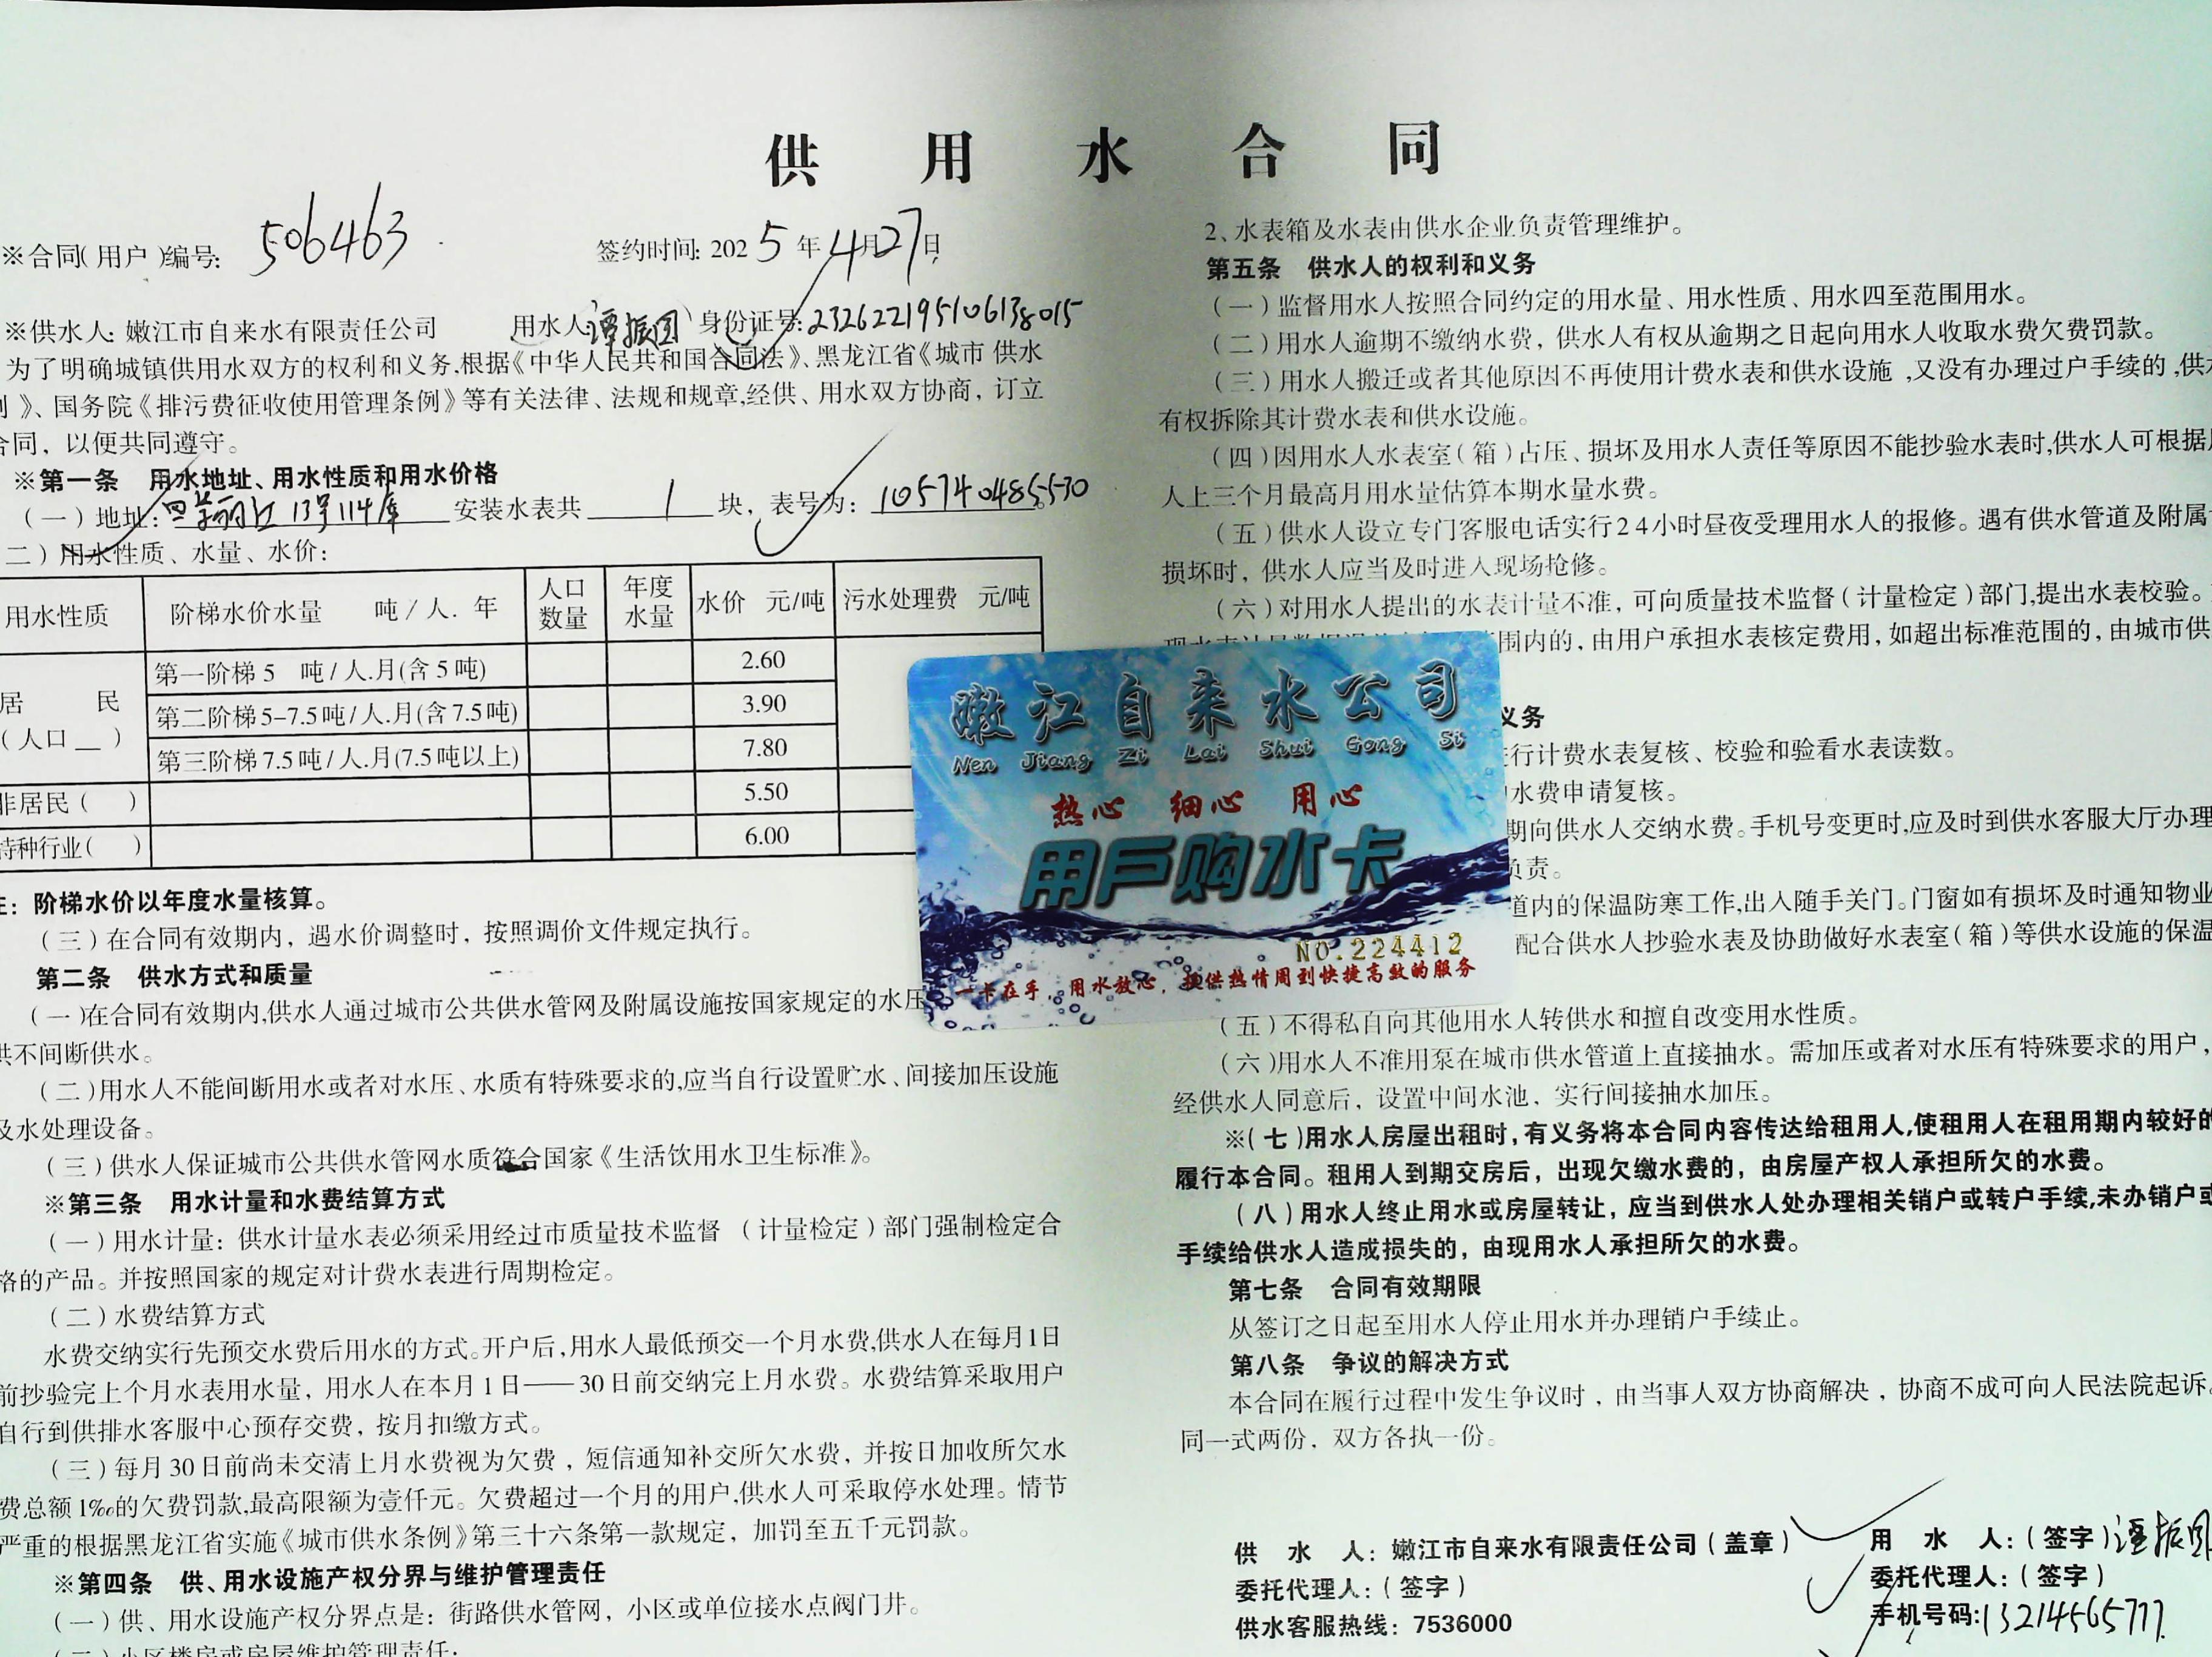 供用水合同
※合同(用户)编号: 506463 签约时间: 2025年4月27日
※供水人: 嫩江市自来水有限责任公司 用水人: 谭振国 身份证号: 232622195106138015
为了明确城镇供用水双方的权利和义务,根据《中华人民共和国合同法》、黑龙江省《城市 供水
》、国务院《排污费征收使用管理条例》等有关法律、法规和规章,经供、用水双方协商，订立
合同，以便共同遵守。
※第一条 用水地址、用水性质和用水价格
(一)地址: 13号114库 安装水表共 1 块，表号为: 1057404855530
二)用水性质、水量、水价:
用水性质 阶梯水价水量 吨/人. 年 人口数量 年度水量 水价 元/吨 污水处理费 元/吨
居民(人口__) 第一阶梯 5 吨/人.月(含 5 吨) 2.60
第二阶梯 5-7.5 吨/人.月(含 7.5 吨) 3.90
第三阶梯 7.5 吨/人.月(7.5 吨以上) 7.80
非居民( ) 5.50
特种行业( ) 6.00
注: 阶梯水价以年度水量核算。
(三)在合同有效期内，遇水价调整时，按照调价文件规定执行。
第二条 供水方式和质量
(一)在合同有效期内,供水人通过城市公共供水管网及附属设施按国家规定的水压
供不间断供水。
(二)用水人不能间断用水或者对水压、水质有特殊要求的,应当自行设置贮水、间接加压设施
及水处理设备。
(三)供水人保证城市公共供水管网水质符合国家《生活饮用水卫生标准》。
※第三条 用水计量和水费结算方式
(一)用水计量: 供水计量水表必须采用经过市质量技术监督 (计量检定)部门强制检定合
格的产品。并按照国家的规定对计费水表进行周期检定。
(二)水费结算方式
水费交纳实行先预交水费后用水的方式。开户后,用水人最低预交一个月水费,供水人在每月1日
前抄验完上个月水表用水量，用水人在本月 1 日——30 日前交纳完上月水费。水费结算采取用户
自行到供排水客服中心预存交费，按月扣缴方式。
(三)每月 30 日前尚未交清上月水费视为欠费，短信通知补交所欠水费，并按日加收所欠水
费总额 1‰的欠费罚款,最高限额为壹仟元。欠费超过一个月的用户,供水人可采取停水处理。情节
严重的根据黑龙江省实施《城市供水条例》第三十六条第一款规定，加罚至五千元罚款。
※第四条 供、用水设施产权分界与维护管理责任
(一)供、用水设施产权分界点是: 街路供水管网，小区或单位接水点阀门井。
(二)小区楼房或房屋维护管理责任:
2、水表箱及水表由供水企业负责管理维护。
第五条 供水人的权利和义务
(一)监督用水人按照合同约定的用水量、用水性质、用水四至范围用水。
(二)用水人逾期不缴纳水费，供水人有权从逾期之日起向用水人收取水费欠费罚款。
(三)用水人搬迁或者其他原因不再使用计费水表和供水设施,又没有办理过户手续的,供水
有权拆除其计费水表和供水设施。
(四)因用水人水表室(箱)占压、损坏及用水人责任等原因不能抄验水表时,供水人可根据
人上三个月最高月用水量估算本期水量水费。
(五)供水人设立专门客服电话实行24小时昼夜受理用水人的报修。遇有供水管道及附属
损坏时，供水人应当及时进入现场抢修。
(六)对用水人提出的水表计量不准，可向质量技术监督(计量检定)部门,提出水表校验。
围内的，由用户承担水表核定费用，如超出标准范围的，由城市供
义务
行计费水表复核、校验和验看水表读数。
水费申请复核。
期向供水人交纳水费。手机号变更时,应及时到供水客服大厅办理
负责。
道内的保温防寒工作,出入随手关门。门窗如有损坏及时通知物业
配合供水人抄验水表及协助做好水表室(箱)等供水设施的保温
(五)不得私自向其他用水人转供水和擅自改变用水性质。
(六)用水人不准用泵在城市供水管道上直接抽水。需加压或者对水压有特殊要求的用户，
经供水人同意后，设置中间水池，实行间接抽水加压。
※(七)用水人房屋出租时,有义务将本合同内容传达给租用人,使租用人在租用期内较好的
履行本合同。租用人到期交房后，出现欠缴水费的，由房屋产权人承担所欠的水费。
(八)用水人终止用水或房屋转让，应当到供水人处办理相关销户或转户手续,未办销户或
手续给供水人造成损失的，由现用水人承担所欠的水费。
第七条 合同有效期限
从签订之日起至用水人停止用水并办理销户手续止。
第八条 争议的解决方式
本合同在履行过程中发生争议时，由当事人双方协商解决，协商不成可向人民法院起诉。
同一式两份，双方各执一份。
供 水 人: 嫩江市自来水有限责任公司(盖章) 用 水 人:(签字) 谭振国
委托代理人:(签字) 委托代理人:(签字)
供水客服热线: 7536000 手机号码: 13214565777
嫩江自来水公司
Nen Jiang Zi Lai Shui Gong Si
热心 细心 用心
用户购水卡
NO.224412
一卡在手，用水放心，提供热情周到快捷高效的服务